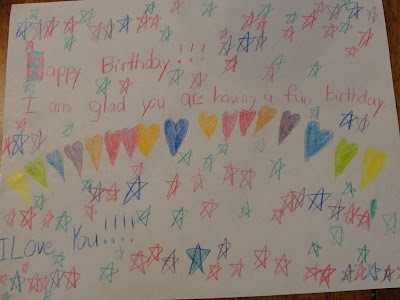 Happy Birthday!!!
I am glad you are having a fun birthday
I Love You!!!!